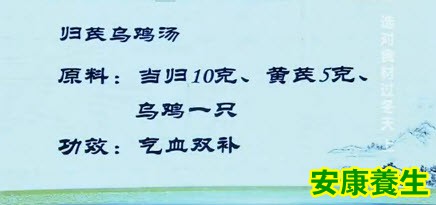 归芪乌鸡汤
原料：当归10克、黄芪5克、
乌鸡一只
功效：气血双补
选对食材过冬天
安康養生